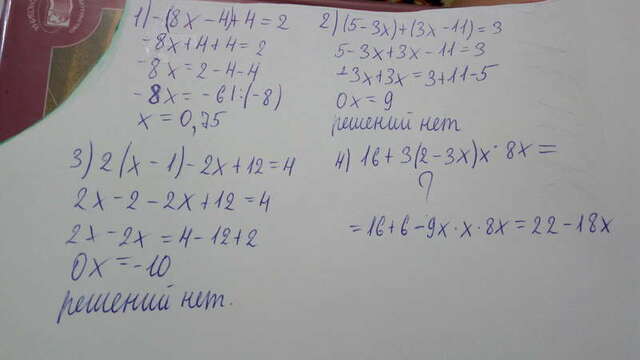 1) -(8x-4)+4=2
-8x+4+4=2
-8x=2-4-4
-8x=-6|:(-8)
x=0,75
2) (5-3x)+(3x-11)=3
5-3x+3x-11=3
-3x+3x=3+11-5
0x=9
решений нет
3) 2(x-1)-2x+12=4
2x-2-2x+12=4
2x-2x=4-12+2
0x=-10
решений нет.
4) 16+3(2-3x)x·8x=
?
=16+6-9x·x·8x=22-18x